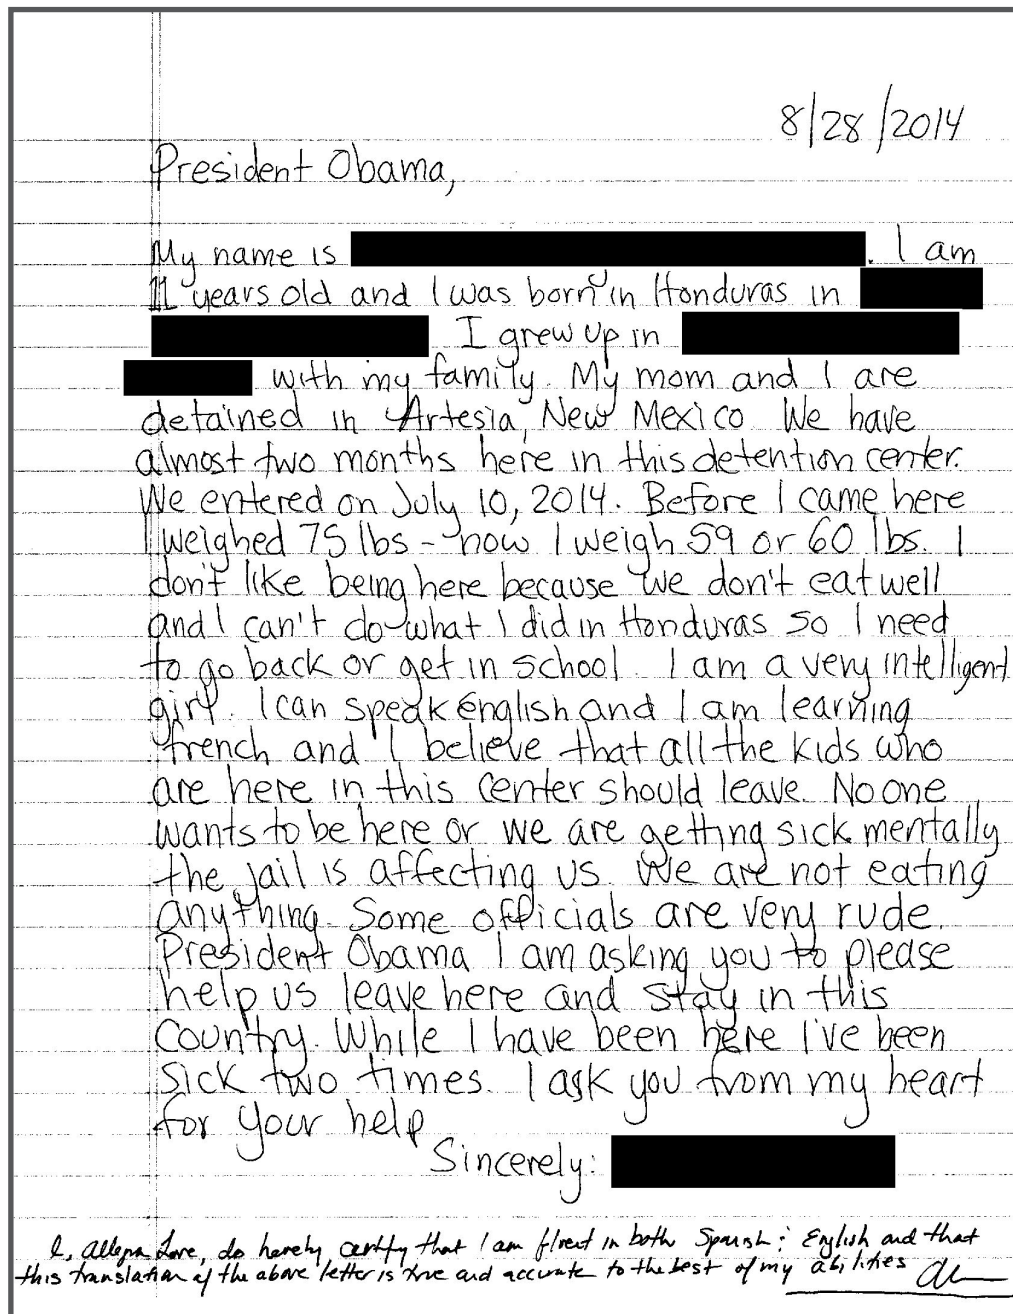 8/28/2014
President Obama,
My name is . I am
11 years old and I was born in Honduras in
I grew up in
with my family. My mom and I are
detained in Artesia, New Mexico We have
almost two months here in this detention center.
We entered on July 10, 2014. Before I came here
I weighed 75 lbs - now I weigh 59 or 60 lbs. I
don't like being here because we don't eat well
and I can't do what I did in Honduras so I need
to go back or get in school. I am a very intelligent
girl. I can speak english and I am learning
french and I believe that all the kids who
are here in this center should leave. No one
wants to be here or we are getting sick mentally
the jail is affecting us. We are not eating
anything. Some officials are very rude.
President Obama I am asking you to please
help us leave here and stay in this
country. While I have been here I've been
sick two times. I ask you from my heart
for your help
Sincerely:
I, Allegra Love, do hereby certify that I am fluent in both Spanish & English and that
this translation of the above letter is true and accurate to the best of my abilities